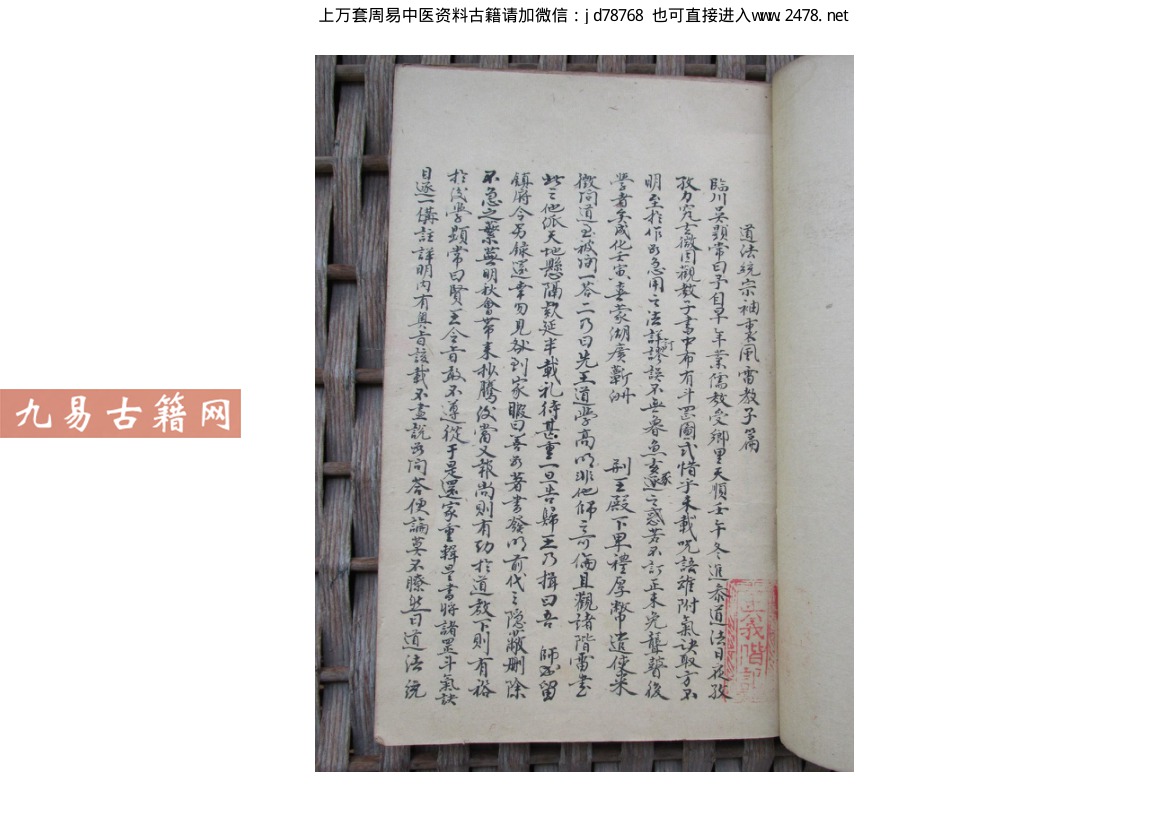 上万套周易中医资料古籍请加微信：jd78768 也可直接进入www.2478.net
道法統宗袖裏風雷教子篇
臨川吳顯常曰予自早年業儒教受鄉里天順壬午冬進泰道法日夜孜
孜力究玄微因觀教子書中布有斗罡圖式惜乎未載咒語雖附氣訣取方不
明至於作用之法詳謬誤不無魯魚亥豕之惑若不訂正未免聾瞽後
學者矣成化壬寅喜蒙湖廣蘄州 荆王殿下卑禮厚幣遣使來
徵問道王被問一答二乃曰先王道學高明非他師之可倫且觀諸階雷書
此之他派天地懸隔欵延半載礼待甚重一旦告歸王乃揖曰吾 師不留
鎮府今另錄還幸勿見却到家暇日善為著書發明前代之隱蔽刪除
不急之蘩蕪明秋會帶來抄騰後當又報尚則有功於道教下則有裕
於後學顯常曰賢王令旨敢不遵從于是還家重輯是書將諸罡斗氣訣
目逐一備註詳明內有奧旨該載不盡說為問答便論莫不瞭然曰道法統
正義階記
九易古籍网